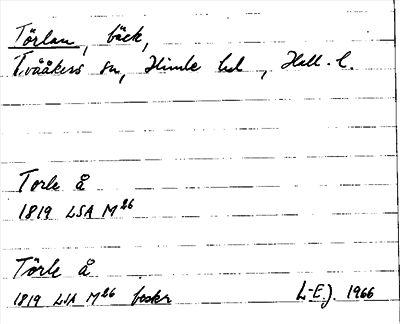 Törlan, bäck,
Tvååkers sn, Himle hd, Hall. l.
Torle å
1819 LSA M²⁶
Törle å
1819 LSA M²⁶ beskr L-E.J. 1966